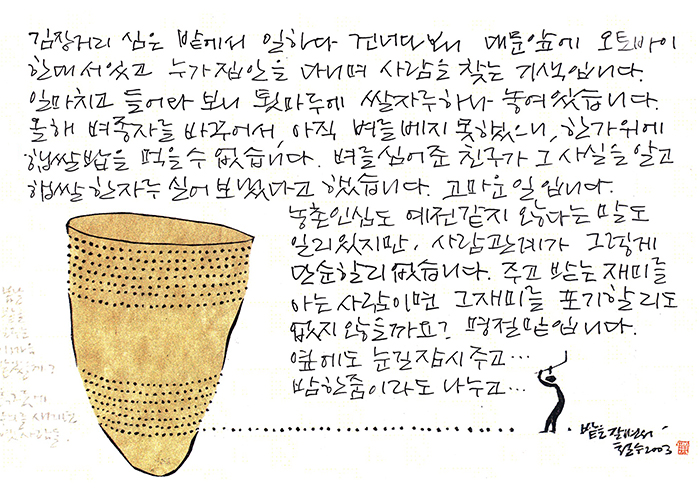 김장거리 심은 밭에서 일하다 건너다보니 대문앞에 오토바이
한대 서있고 누가 집안을 다니며 사람을 찾는 기색입니다.
일마치고 들어와 보니 툇마루에 쌀자루하나 놓여있습니다.
올해 벼종자를 바꾸어서, 아직 벼를 베지 못했으니, 한가위에
햅쌀밥을 먹을 수 없습니다. 벼를 심어준 친구가 그 사실을 알고
햅쌀 한자루 실어 보냈다고 했습니다. 고마운 일입니다.
농촌인심도 예전같지 않다는 말도
일리있지만, 사람관계가 그렇게
단순할리 없습니다. 주고 받는 재미를
아는 사람이면 그 재미를 포기할리도
없지 않을까요? 명절밑입니다.
옆에도 눈길 잠시 주고...
밤 한줌이라도 나누고...
밭을 갈면서
철수 2003